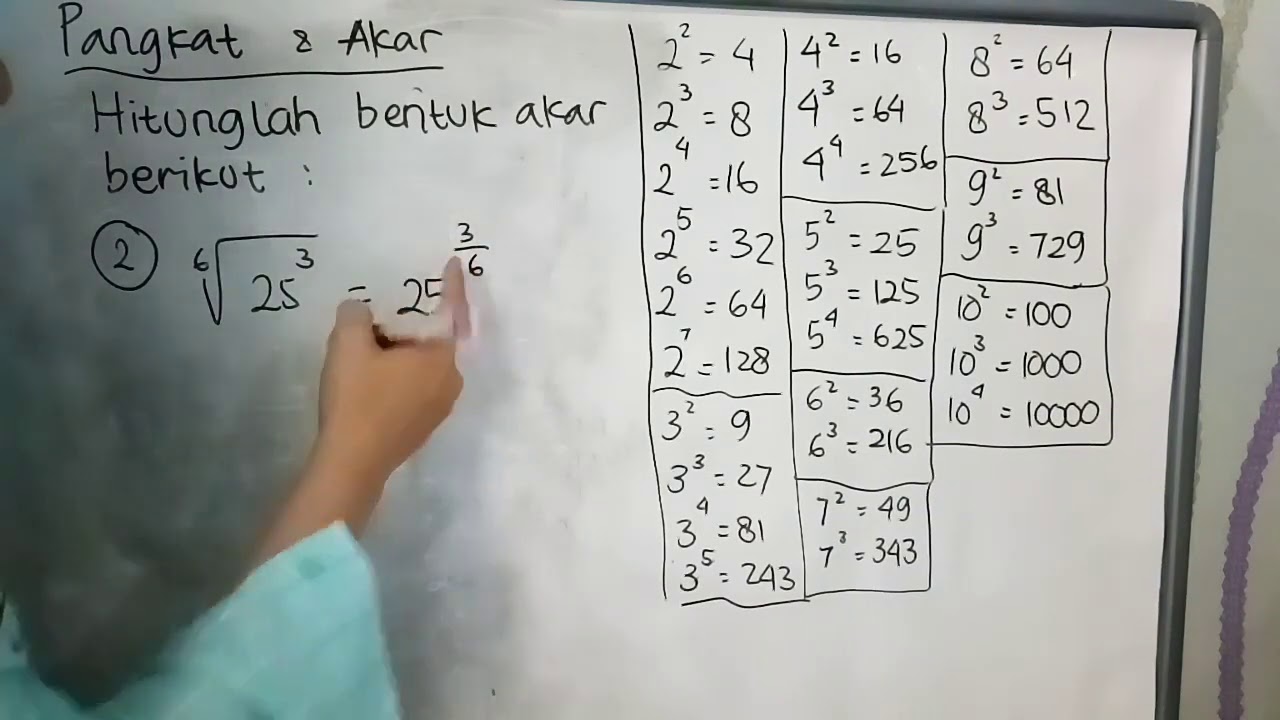 Pangkat & Akar
Hitunglah bentuk akar
berikut :
② ⁶√25³ = 25^(3/6)
2² = 4
2³ = 8
2⁴ = 16
2⁵ = 32
2⁶ = 64
2⁷ = 128
3² = 9
3³ = 27
3⁴ = 81
3⁵ = 243
4² = 16
4³ = 64
4⁴ = 256
5² = 25
5³ = 125
5⁴ = 625
6² = 36
6³ = 216
7² = 49
7³ = 343
8² = 64
8³ = 512
9² = 81
9³ = 729
10² = 100
10³ = 1000
10⁴ = 10000